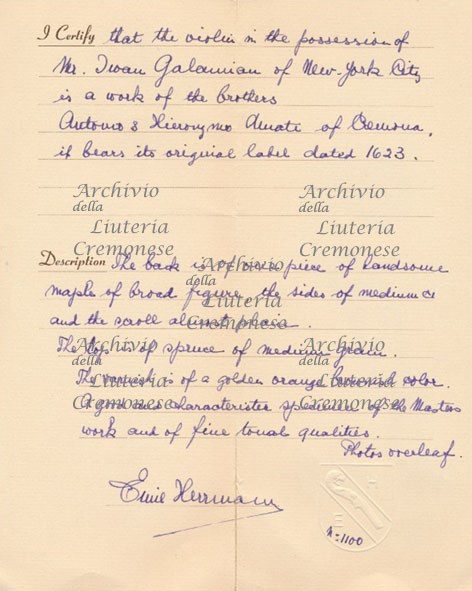 I Certify that the violin in the possession of
Mr. Iwan Galamian of New-York City
is a work of the brothers
Antonio & Hieronymo Amate of Cremona,
it bears its original label dated 1623.
Archivio
della
Liuteria
Cremonese
Archivio
della
Liuteria
Cremonese
Description The back is of one piece of handsome
Archivio
della
Liuteria
Cremonese
maple of broad figure, the sides of medium &
and the scroll almost plain.
The top is of spruce of medium grain.
Archivio
della
Liuteria
Cremonese
Archivio
della
Liuteria
Cremonese
The varnish is of a golden orange brownish color.
A good and characterister specimen of the Masters
work and of fine tonal qualities.
Photos overleaf.
Emil Herrmann
E H
N=1100